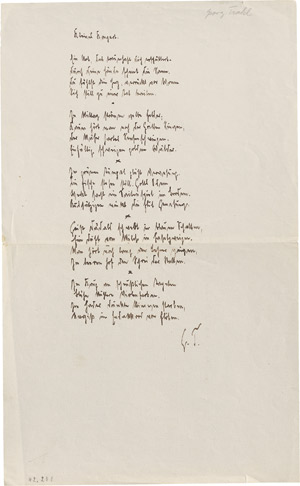 Georg Trakl
Kleines Konzert.
Ein Rot, das traumhaft dich erschüttert.
Durch deine Hände scheint die Sonne.
Du fühlst dein Herz verrückt vor Wonne
Sich still zu einer Tat bereiten.
*
In Mittag strömen gelbe Felder.
Kaum hörst du noch der Grillen Singen,
Der Mäher hartes Sensenschwingen.
Einfältig schweigen goldene Wälder.
*
Im grünen Tümpel glüht Verwesung.
Die Fische stehen still. Gotts Odem
Weckt sacht ein Saitenspiel im Brodem.
Aussätzigen winkt die Flut Genesung.
*
Geist Dädals schwebt in blauen Schatten,
Ein Duft von Milch in Haselzweigen.
Man hört noch lang den Lehrer geigen,
Im leeren Hof den Schrei der Ratten.
*
Im Krug an scheußlichen Tapeten
Blühn kühlere Violenfarben.
Im Hader dunkle Stimmen starben,
Narziß im Endakkord von Flöten.
G. T.